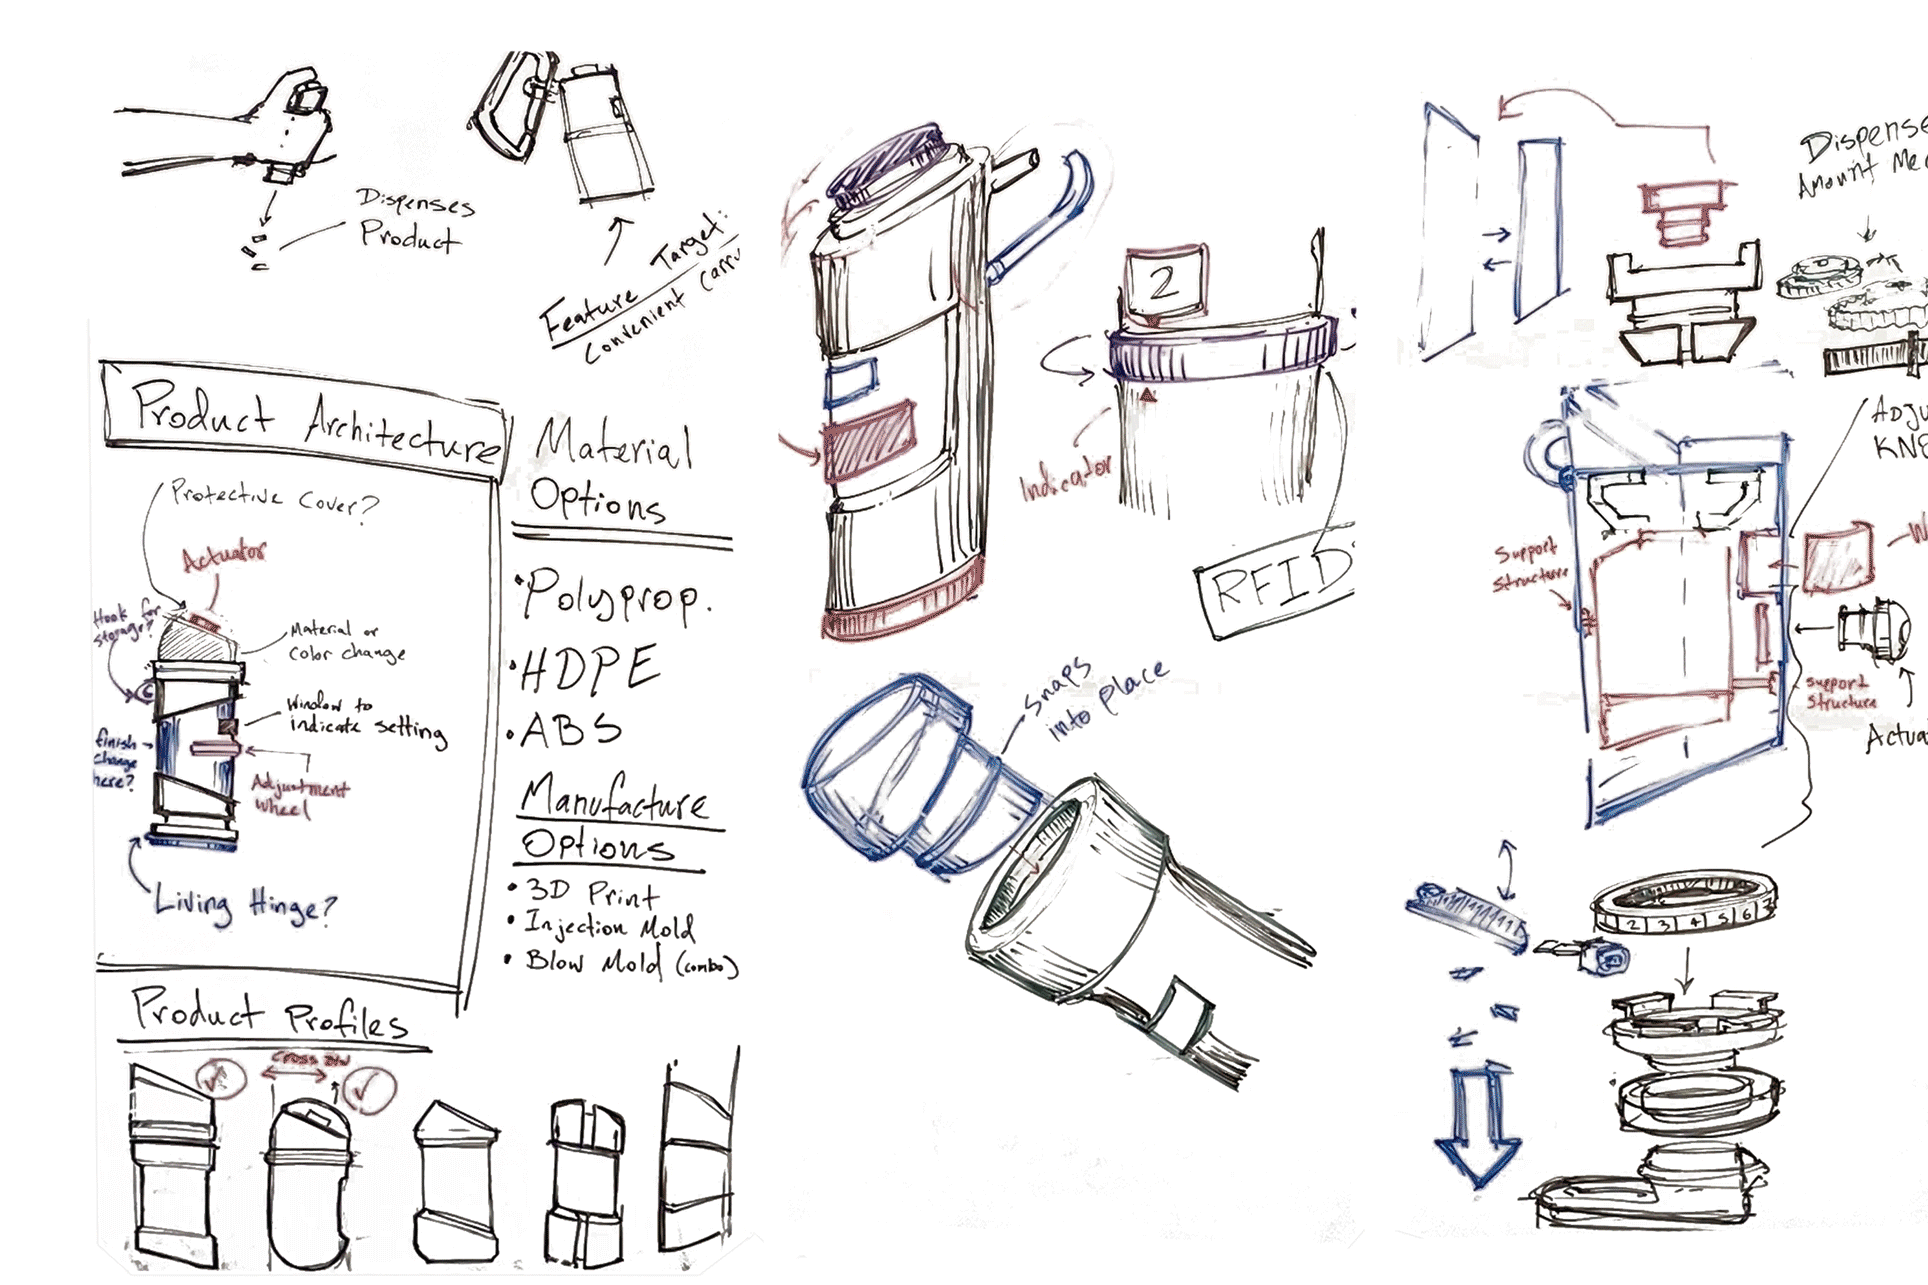 Dispenses
Product
Feature Target:
Convenient
Product Architecture
Protective Cover?
Actuator
Hook for
storage?
Material or
color change
Window to
indicate setting
finish
change
here?
Adjustment
wheel
Living Hinge?
Material
Options
• Polyprop.
• HDPE
• ABS
Manufacture
Options
• 3D Print
• Injection Mold
• Blow Mold (combo)
Product Profiles
Cross
2
Indicator
RFID
snaps
into place
Dispense
Amount
Support
Structure
support
structure
2 3 4 5 6